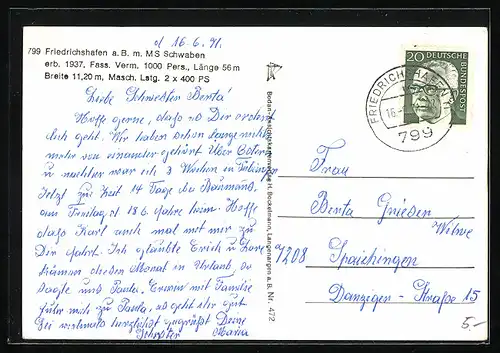 d 16.6.71.
799 Friedrichshafen a. B. m. MS Schwaben
erb. 1937, Fass. Verm. 1000 Pers., Länge 56 m
Breite 11,20 m, Masch. Lstg. 2 x 400 PS
Liebe Schwester Benta!
Hoffe gerne, dass es Dir
geht. Wir haben schon lange nichts
mehr von einander gehört. Über Ostern
u nachher war ich 3 Wochen in Tübingen
Jetzt zur Zeit 14 Tage
am Freitag, d 18.6. fahre heim. Hoffe
dass Karl auch mal mit mir zu
Dir fährt. Ich glaubte Erich u
kämen diesen Monat in Urlaub, so
sagte uns Paula. mit Familie
fuhr mir zu Paula, es geht ihr gut
Sei vielmals herzlichst gegrüßt Deine
Schwester Maria
Bodensee Ansichtskartenverlag H. Beckelmann, Langenargen a. B. Nr. 472
20 DEUTSCHE BUNDESPOST
FRIEDRICHSHAFEN
16.
799
Frau
Benta Grieden
Witwe
7208 Spaichingen
Danziger-Straße 15
5.-